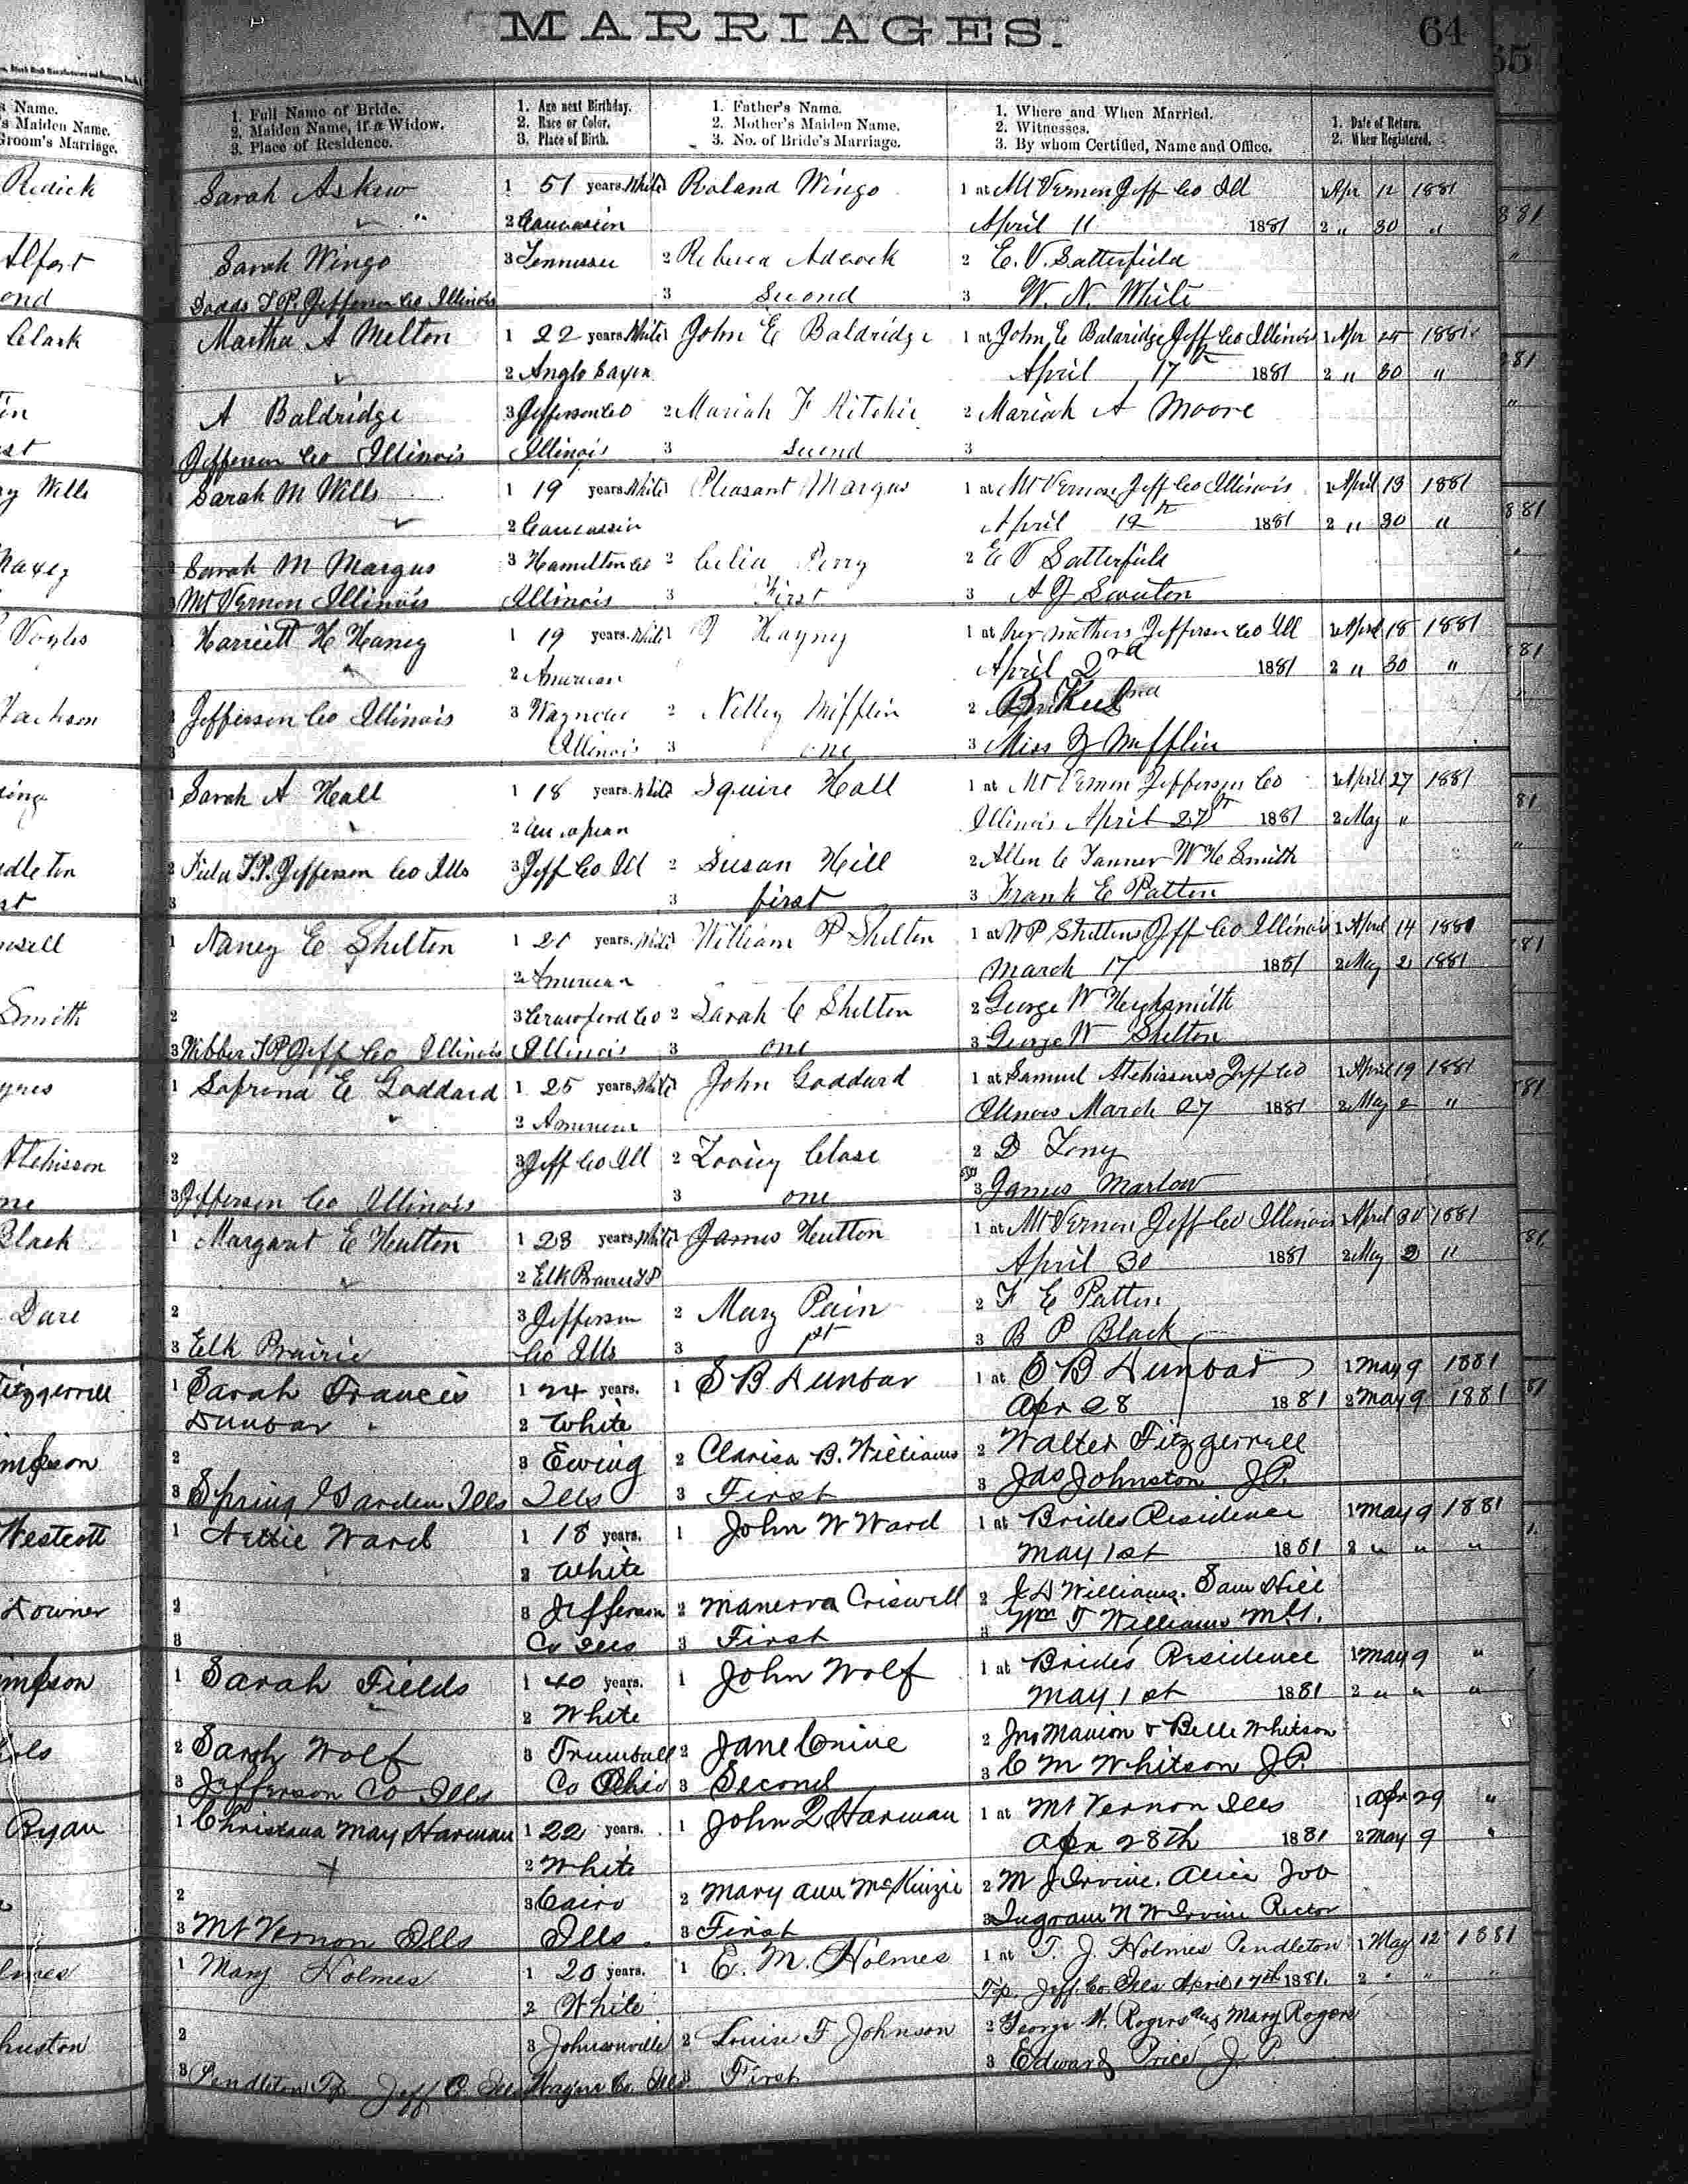 MARRIAGES.
64
65
s Name.
's Maiden Name.
Groom's Marriage.
1. Full Name of Bride.
2. Maiden Name, if a Widow.
3. Place of Residence.
1. Age next Birthday.
2. Race or Color.
3. Place of Birth.
1. Father's Name.
2. Mother's Maiden Name.
3. No. of Bride's Marriage.
1. Where and When Married.
2. Witnesses.
3. By whom Certified, Name and Office.
1. Date of Return.
2. When Registered.
Redick
Sarah Askew 1 51 years. White Roland Wingo 1 at Mt Vernon Jeff Co Ill 1 Apr 12 1881
2 Caucasian April 11 1881 2 " 30 "
Sarah Wingo 3 Tennessee 2 Rebeca Adcock 2 E. V. Satterfield
Dodds T.P. Jefferson Co Illinois 3 Second 3 W. N. White
Clark
Martha A Melton 1 22 years. White John E Baldridge 1 at John E Balaridge Jeff Co Illinois 1 Apr 25 1881
2 Anglo Saxon April 17th 1881 2 " 30 "
A Baldridge 3 Jefferson Co 2 Mariah F Ritchie 2 Mariah A Moore
Jefferson Co Illinois Illinois 3 Second 3
Wells
Sarah M Wills 1 19 years. White Pleasant Margus 1 at Mt Vernon Jeff Co Illinois 1 April 13 1881
2 Caucassin April 12th 1881 2 " 30 "
Sarah M Margus 3 Hamilton Co 2 Celia Perry 2 E V Satterfield
3 Mt Vernon Illinois Illinois 3 First 3 A J
Voyles
1 Harriett H Haney 1 19 years. White J Hayny 1 at her mothers Jefferson Co Ill 1 April 18 1881
2 American April 2nd 1881 2 " 30 "
Jackson
Jefferson Co Illinois 3 2 Nelley Mifflin 2
Illinois 3 one 3 Miss J Mifflin
1 Sarah A Hall 1 18 years. White Squire Hall 1 at Mt Vernon Jefferson Co 1 April 27 1881
2 Illinois April 27th 1881 2 May "
2 T.P. Jefferson Co Ills 3 Jeff Co Ill 2 Susan Hill 2 Allen C Tanner W H Smith
3 3 first 3 Frank E Patten
1 Nancy E Shelton 1 21 years. White William P Shelton 1 at W P Sheltens Jeff Co Illinois 1 April 14 1881
2 American March 17 1881 2 May 2 1881
Smith
2 3 Crawford Co 2 Sarah C Shelton 2 George W Heighsmith
3 Webber T P Jeff Co Illinois Illinois 3 one 3 George W Shelton
1 Safrona E Goddard 1 25 years. White John Goddard 1 at Samuel Atchissons Jeff Co 1 April 19 1881
2 American Illinois March 27 1881 2 May 2 "
Atchisson
2 3 Jeff Co Ill 2 Close 2 D
3 Jefferson Co Illinois 3 one 3 James Marlow
Black
1 Margaret E Hutton 1 23 years. White James Hutton 1 at Mt Vernon Jeff Co Illinois 1 April 30 1881
2 Elk Prairie T P April 30 1881 2 May 2 "
Dare
2 3 Jefferson 2 Mary Pain 2 F E Patten
3 Elk Prairie Co Ills 3 1st 3 B P Black
Fitzgerrell
1 Sarah Francis 1 24 years. 1 S B Dunbar 1 at S B Dunbar 1 May 9 1881
Dunbar 2 White Apr 28 1881 2 May 9 1881
2 3 Ewing 2 Clarisa B. Williams 2 Walter Fitzgerrell
3 Spring Garden Ills Ills 3 First 3 Jas Johnston J.P.
Westcott
1 Nettie Ward 1 18 years. 1 John W Ward 1 at Brides Residence 1 May 9 1881
2 White May 1st 1881 2 " " "
Downer
2 3 Jefferson 2 Manerva Criswell 2 J D Williams. Sam Hill
3 Co Ills 3 First 3 Wm T Williams M.G.
1 Sarah Fields 1 40 years. 1 John Wolf 1 at Brides Residence 1 May 9 "
2 White May 1st 1881 2 " " "
2 Sarah Wolf 3 Trumbull 2 Jane Cnine 2 Jno Manion & Belle Whitson
3 Jefferson Co Ills Co Ohio 3 Second 3 C M Whitson J.P.
Ryan
1 Christana May Harman 1 22 years. 1 John Q Harman 1 at Mt Vernon Ills 1 Apr 29 "
2 White Apr 28th 1881 2 May 9 "
2 3 Cairo 2 Mary Ann McKinzie 2 M J Irvine. Alice Joo
3 Mt Vernon Ills Ills. 3 First 3 Ingram N W Irvine Rector
1 Mary Holmes 1 20 years. 1 E. M. Holmes 1 at T. J. Holmes Pendleton 1 May 12 1881
2 White Tp. Jeff. Co. Ills April 17th 1881. 2 " " "
2 3 Johnsonville 2 Louise F Johnson 2 George H. Rogers and Mary Rogers
3 Pendleton Tp Jeff C. Ills Wayne Co. Ills. 3 First 3 Edward Price J P.